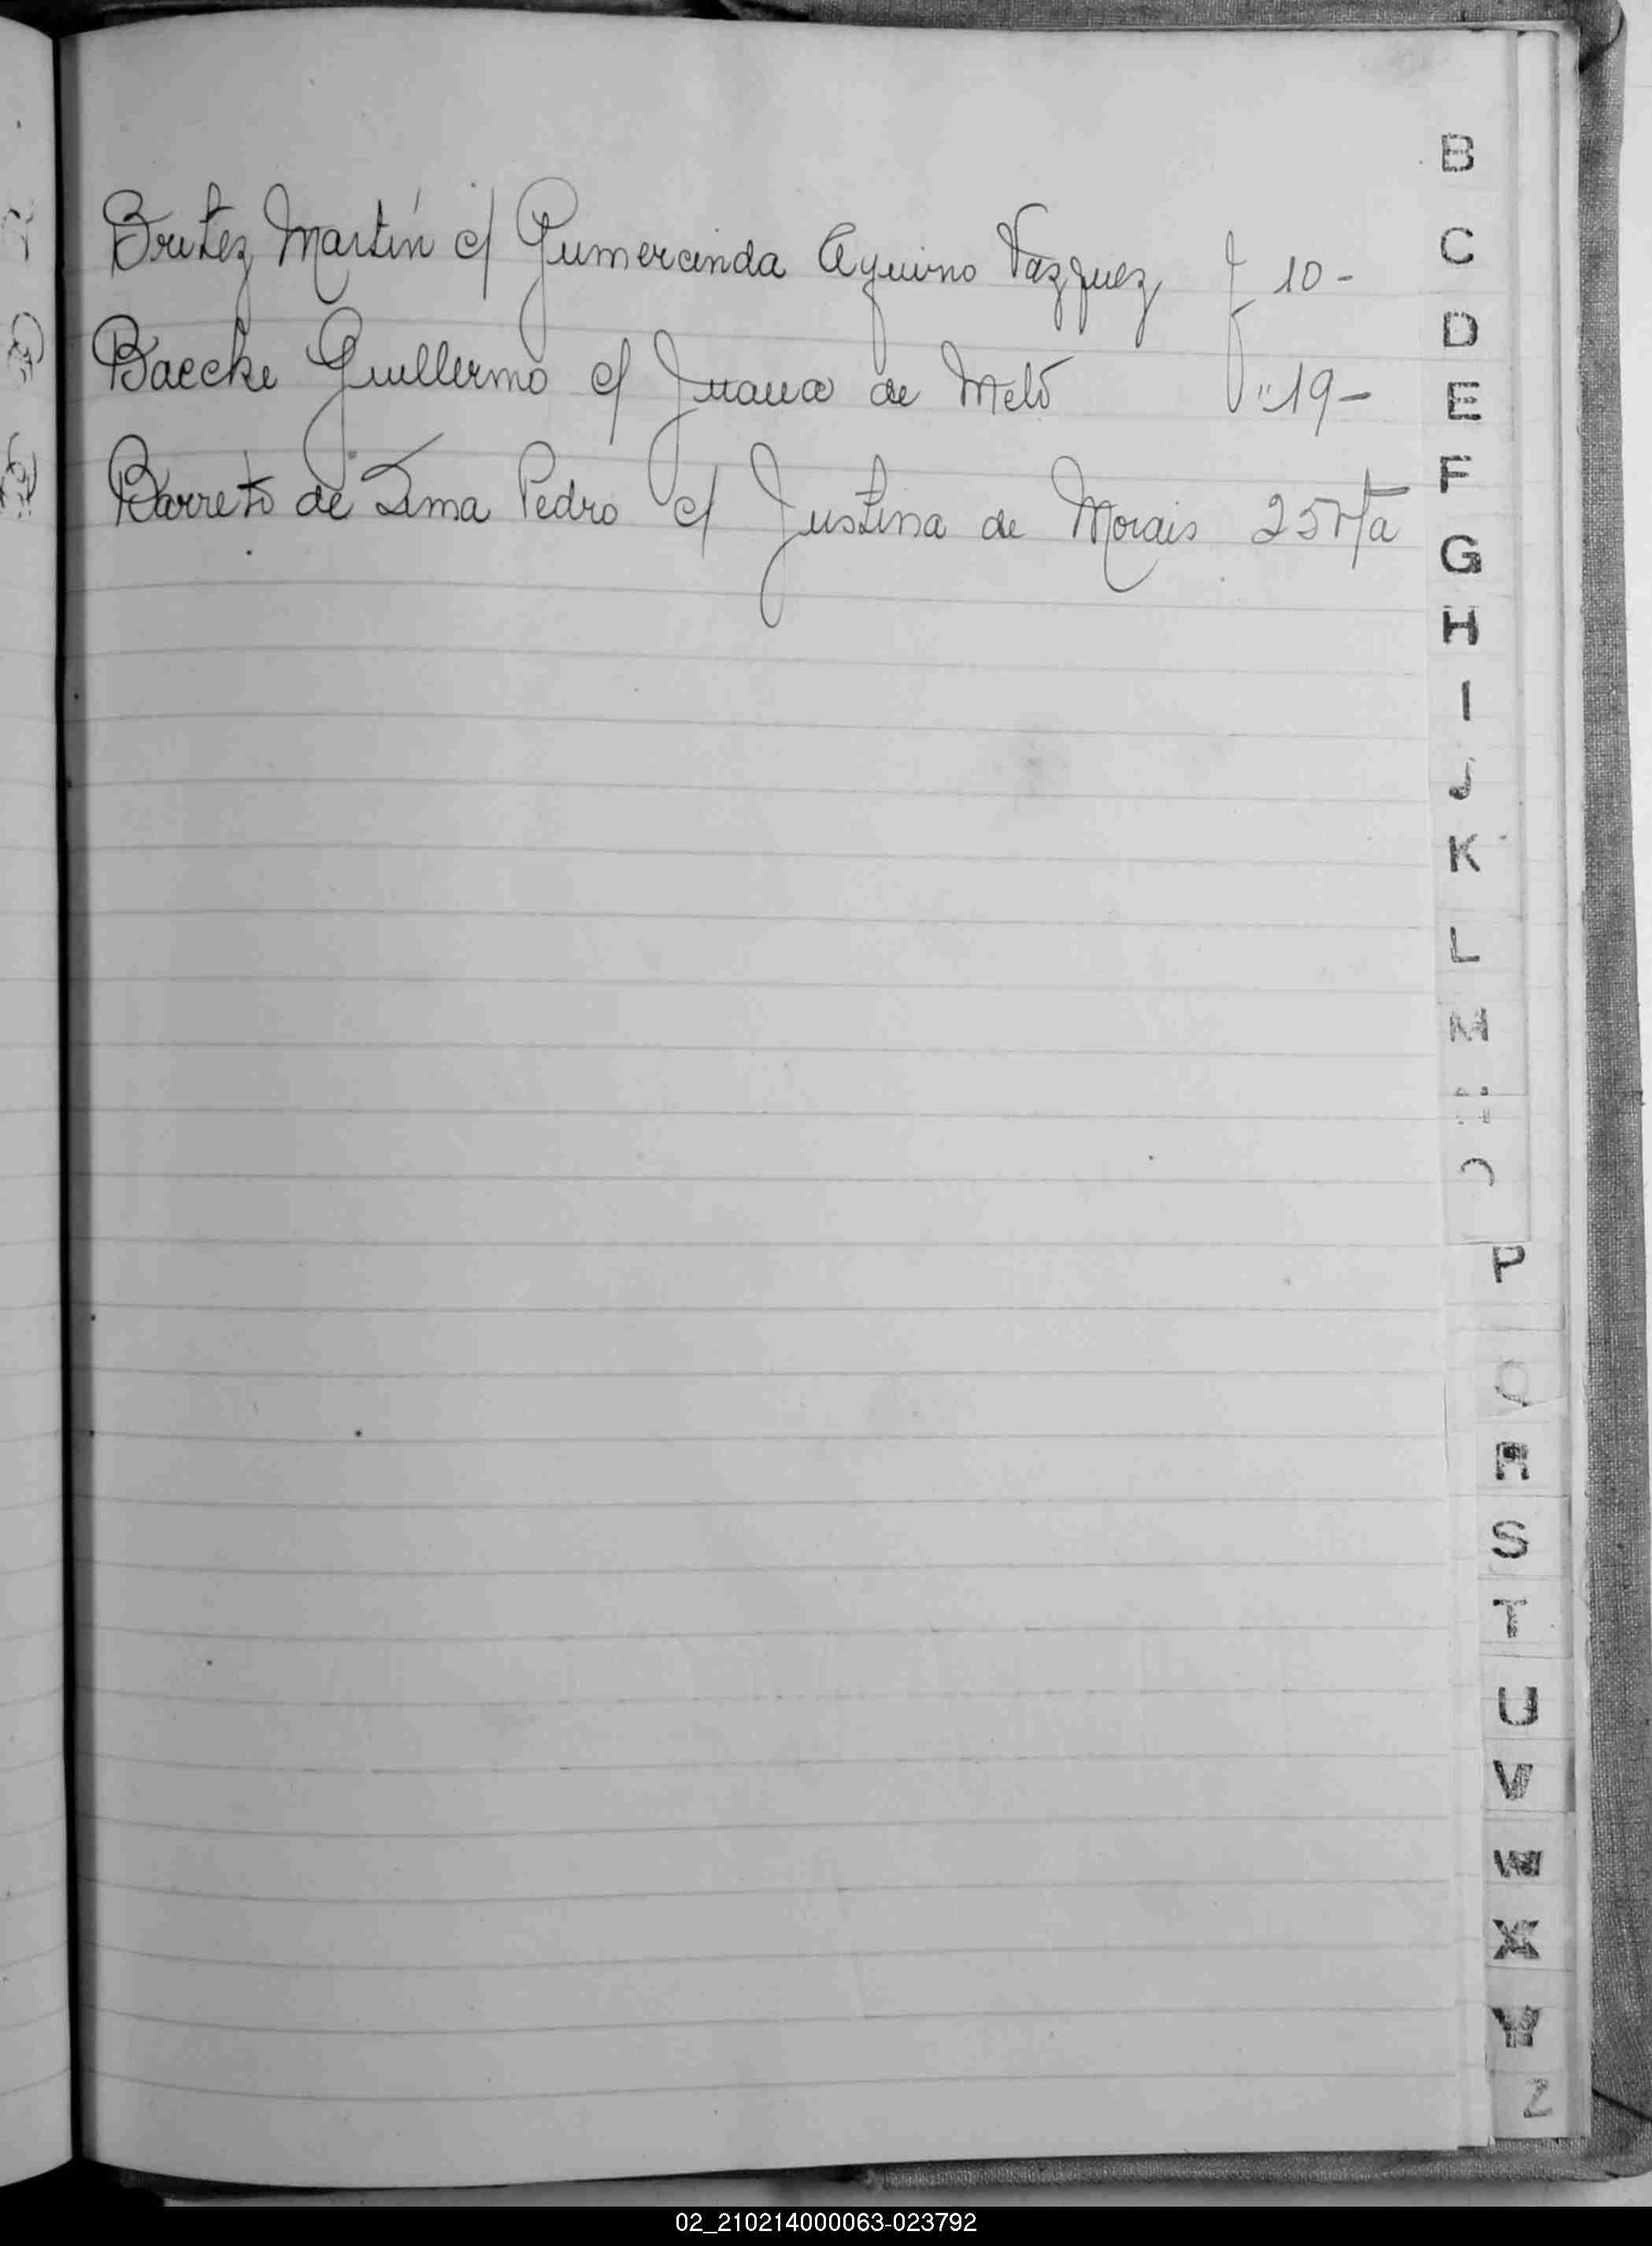 Britez Martín c/ Gumercinda Aquino Vazquez f 10-
Baecke Guillermo c/ Juana de Melo " 19-
Barreto de Lima Pedro c/ Justina de Morais 25
B
C
D
E
F
G
H
I
J
K
L
M
P
Q
R
S
T
U
V
W
X
Y
Z
02_210214000063-023792